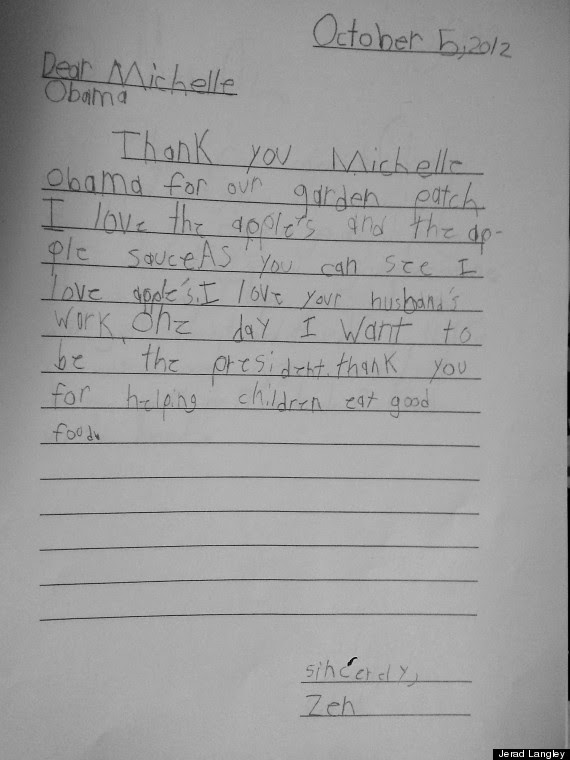 October 5, 2012
Dear Michelle
Obama
Thank you Michelle
obama for our garden patch
I love the apple's and the ap-
ple sauce As you can see I
love apple's. I love your husband's
work. One day I want to
be the president. thank you
for helping children eat good
food.
sincerely,
Zeh
Jerad Langley